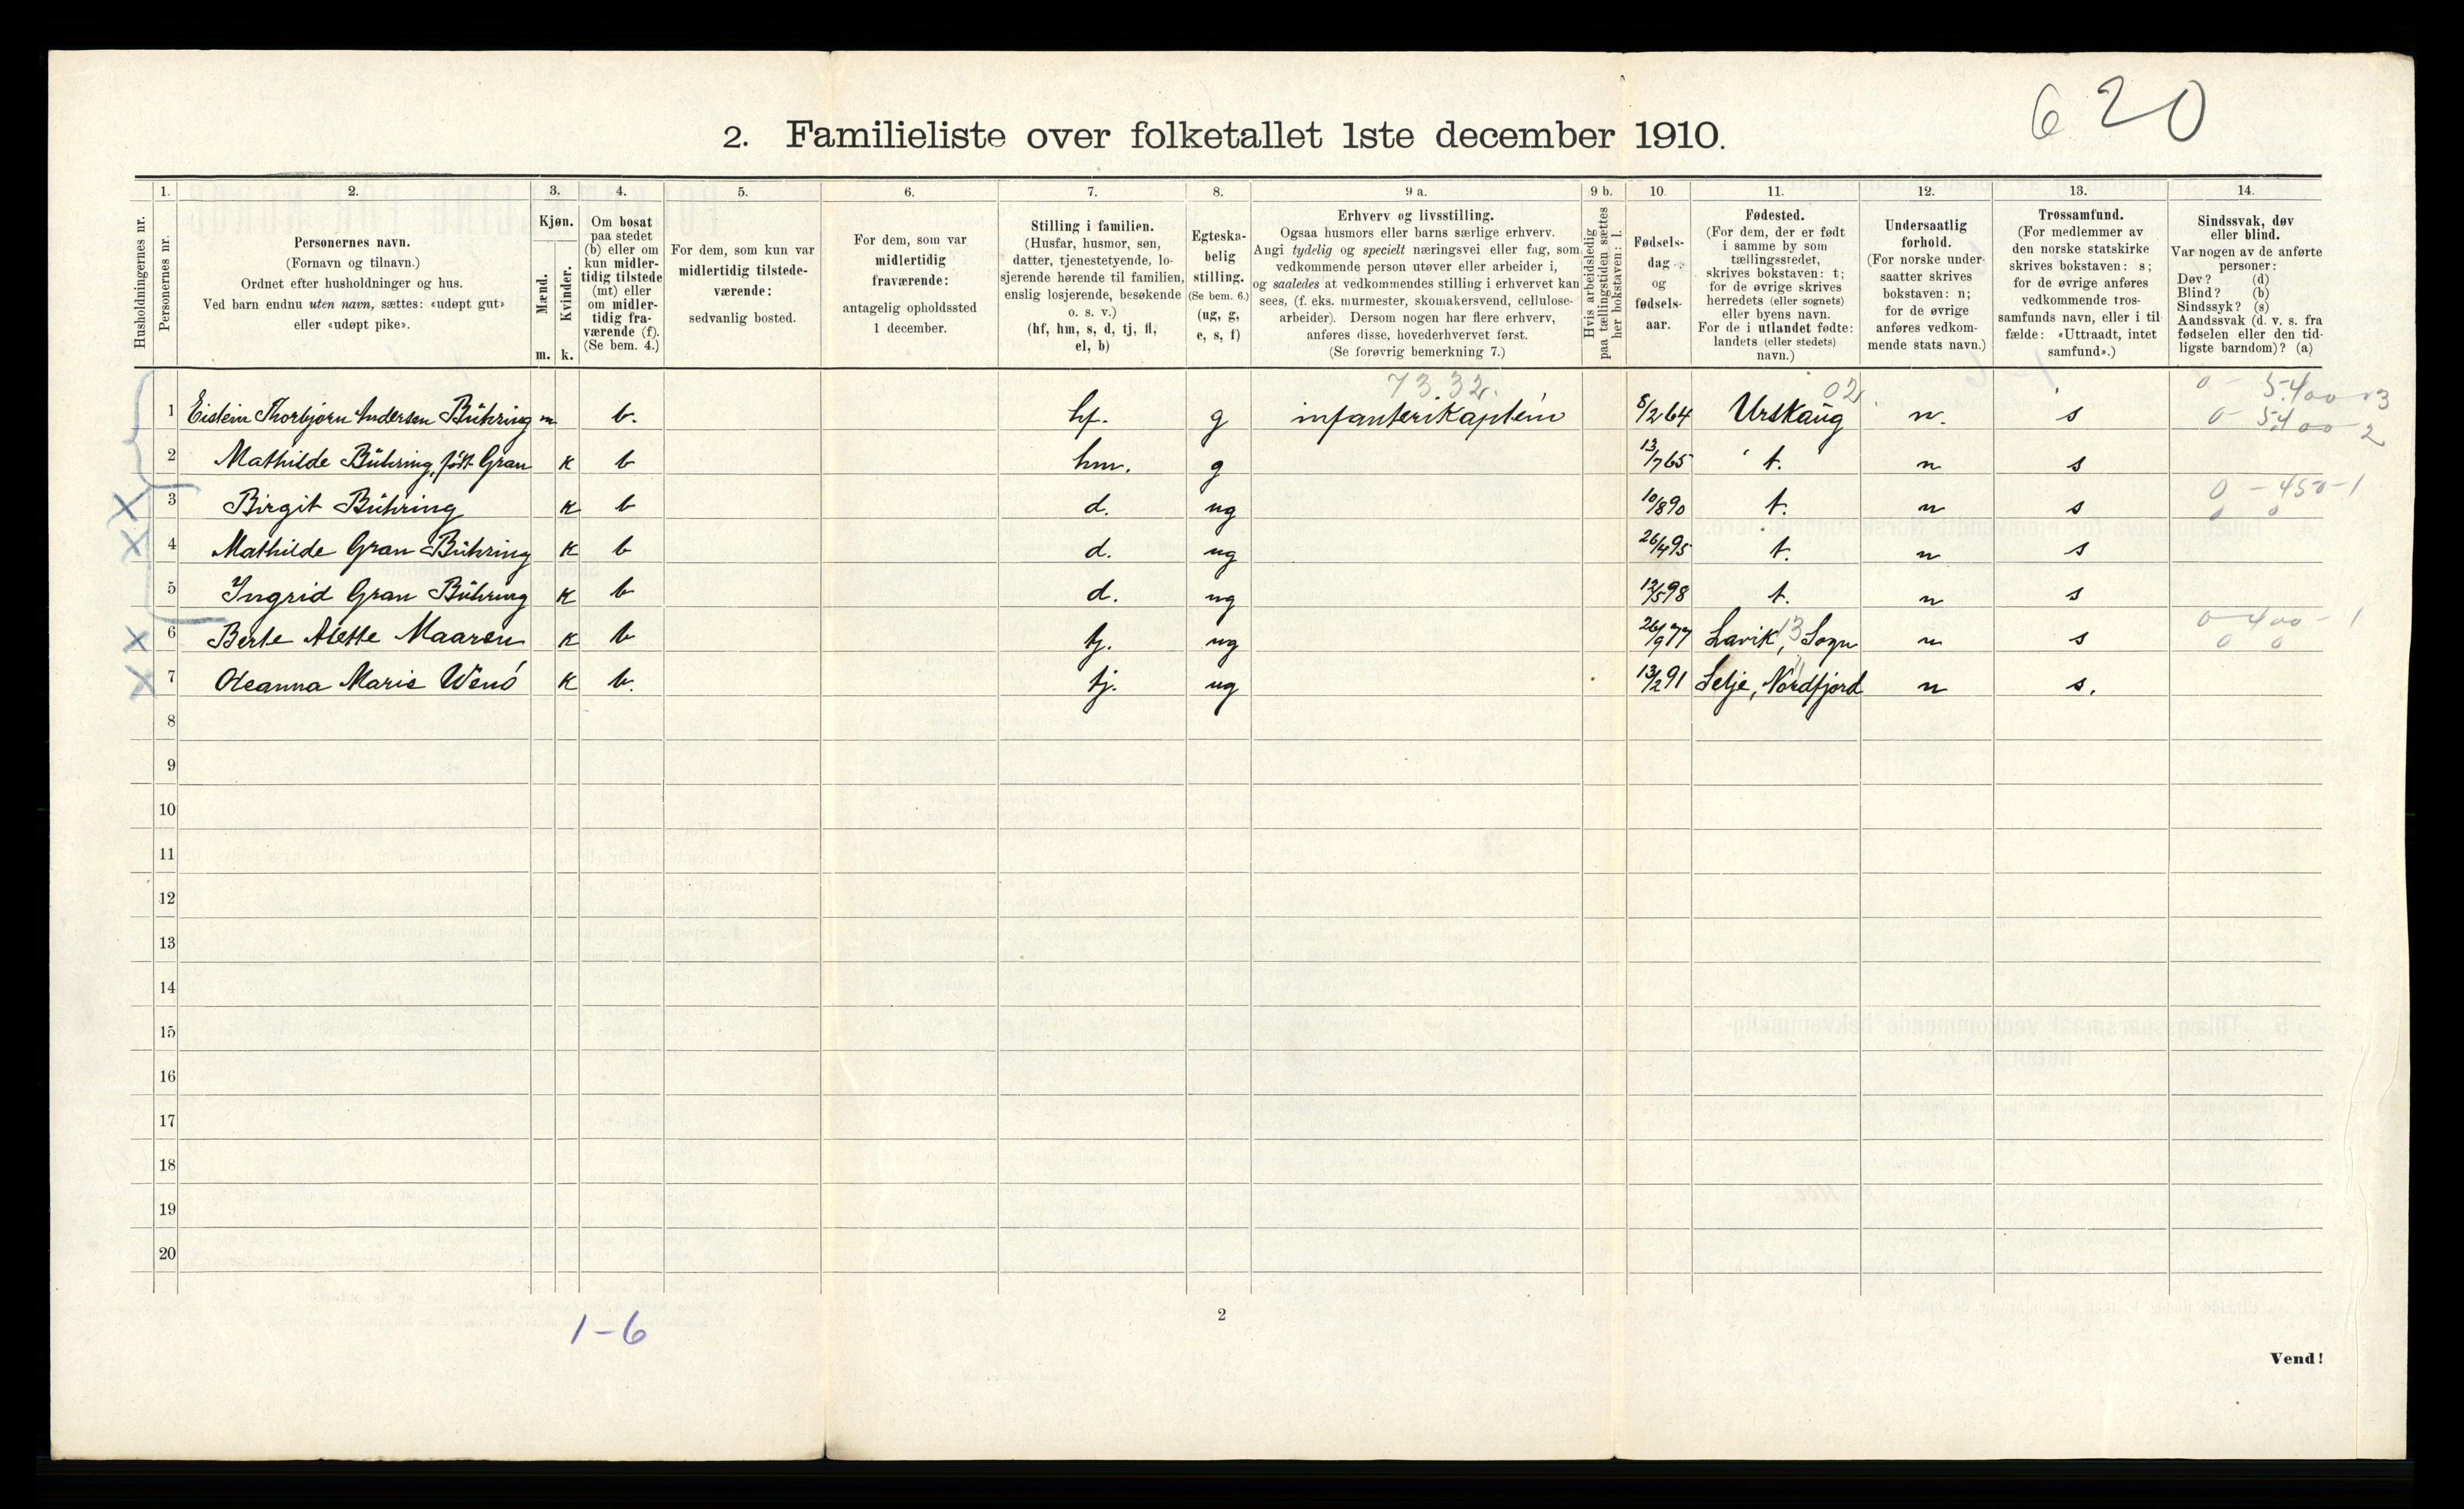 620
2. Familieliste over folketallet 1ste december 1910.
1. 2. 3. 4. 5. 6. 7. 8. 9 a. 9 b. 10. 11. 12. 13. 14.
Husholdningernes nr.
Personernes nr.
Personernes navn.
(Fornavn og tilnavn.)
Ordnet efter husholdninger og hus.
Ved barn endnu uten navn, sættes: «udøpt gut»
eller «udøpt pike».
Kjøn.
Mænd.
Kvinder.
m. k.
Om bosat
paa stedet
(b) eller om
kun midler-
tidig tilstede
(mt) eller
om midler-
tidig fra-
værende (f).
(Se bem. 4.)
For dem, som kun var
midlertidig tilstede-
værende:
sedvanlig bosted.
For dem, som var
midlertidig
fraværende:
antagelig opholdssted
1 december.
Stilling i familien.
(Husfar, husmor, søn,
datter, tjenestetyende, lo-
sjerende hørende til familien,
enslig losjerende, besøkende
o. s. v.)
(hf, hm, s, d, tj, fl,
el, b)
Egteska-
belig
stilling.
(Se bem. 6.)
(ug, g,
e, s, f)
Erhverv og livsstilling.
Ogsaa husmors eller barns særlige erhverv.
Angi tydelig og specielt næringsvei eller fag, som
vedkommende person utøver eller arbeider i,
og saaledes at vedkommendes stilling i erhvervet kan
sees, (f. eks. murmester, skomakersvend, cellulose-
arbeider). Dersom nogen har flere erhverv,
anføres disse, hovederhvervet først.
(Se forøvrig bemerkning 7.)
Hvis arbeidsledig
paa tællingstiden sættes
her bokstaven: l.
Fødsels-
dag
og
fødsels-
aar.
Fødested.
(For dem, der er født
i samme by som
tællingsstedet,
skrives bokstaven: t;
for de øvrige skrives
herredets (eller sognets)
eller byens navn.
For de i utlandet fødte:
landets (eller stedets)
navn.)
Undersaatlig
forhold.
(For norske under-
saatter skrives
bokstaven: n;
for de øvrige
anføres vedkom-
mende stats navn.)
Trossamfund.
(For medlemmer av
den norske statskirke
skrives bokstaven: s;
for de øvrige anføres
vedkommende tros-
samfunds navn, eller i til-
fælde: «Uttraadt, intet
samfund».)
Sindssvak, døv
eller blind.
Var nogen av de anførte
personer:
Døv? (d)
Blind? (b)
Sindssyk? (s)
Aandssvak (d. v. s. fra
fødselen eller den tid-
ligste barndom)? (a)
7332. 02. 0 - 5.400-3
1 Eistein Thorbjørn Andersen Bühring m b. hf. g infanterikaptein 8/2 64 Urskaug n. s 0 5400 2
2 Mathilde Bühring, født Gran k b hm. g 13/7 65 t. n s
0 - 450-1
3 Birgit Bühring k b d. ug 10/8 90 t. n s 0 0
4 Mathilde Gran Bühring k b d. ug 26/4 95 t. n s
5 Ingrid Gran Bühring k b d. ug 12/5 98 t. n s
0 400 - 1
6 Berte Alette Maaren k b tj. ug 26/9 77 Lavik, 13 Sogn n s 0 0
7 Oleanna Marie Wenö k b. tj. ug 13/2 91 Selje, Nordfjord n s.
8
9
10
11
12
13
14
15
16
17
18
19
20
2
1-6
Vend!